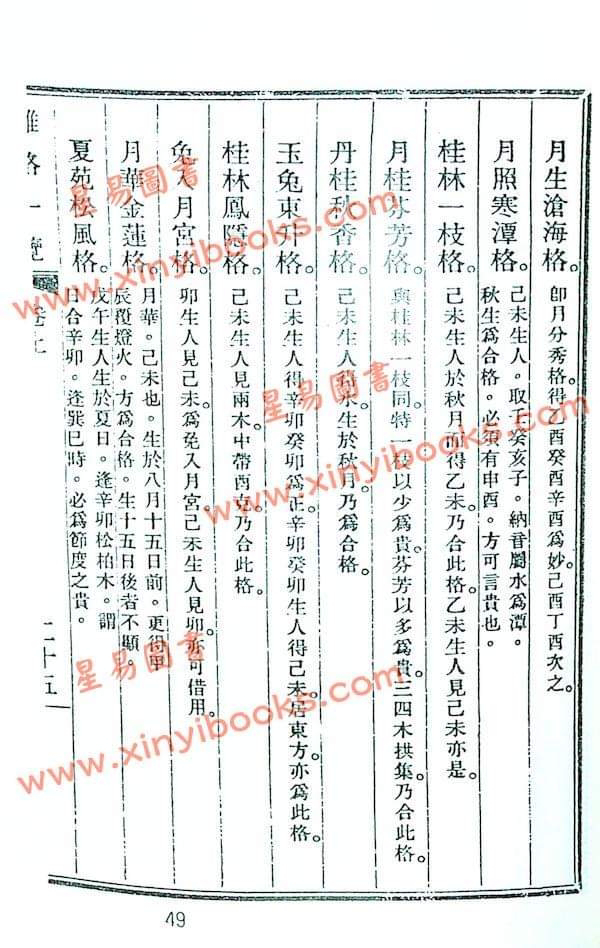 月生滄海格。
卽月分秀格。得乙酉癸酉辛酉爲妙。己酉丁酉次之。
月照寒潭格。
己未生人。取壬癸亥子。納音屬水爲潭。
秋生爲合格。必須有申酉。方可言貴也。
桂林一枝格。
己未生人於秋月而得乙未。乃合此格。乙未生人見己未亦是。
月桂芬芳格。
與桂林一枝同。特一枝以少爲貴。芬芳以多爲貴。三四木拱集。乃合此格。
丹桂秋香格。
己未生人得木。生於秋月。乃爲合格。
玉兔東升格。
己未生人得辛卯癸卯爲正。辛卯癸卯生人得己未。居東方亦爲此格。
桂林鳳隱格。
己未生人見兩木。中帶酉。乃合此格。
兔入月宮格。
卯生人見己未。爲兔入月宮。己未生人見卯。亦可借用。
月華金蓮格。
月華。己未也。生於八月十五日前。更得甲
辰覆燈火。方爲合格。生十五日後者不顯。
夏苑松風格。
戊午生人生於夏日。逢辛卯松柏木。謂
合辛卯。逢巽巳時。必爲節度之貴。
格一覽
卷上
二十五
49
星易圖書
www.xinyibooks.com
星易圖書
www.xinyibooks.com
星易圖書
www.xinyibooks.com